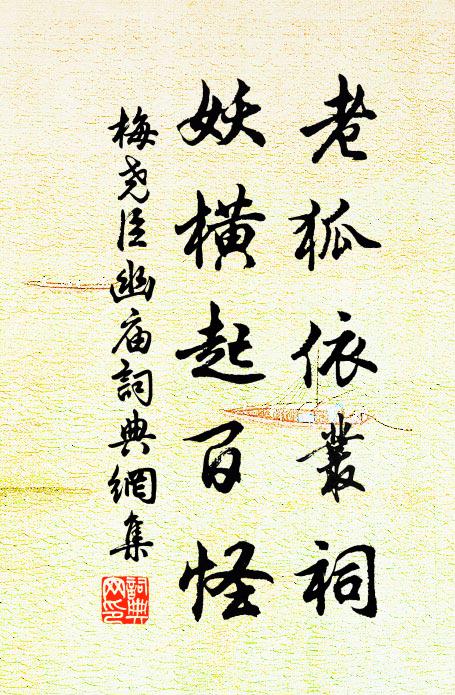 老狐依叢祠
妖橫起百怪
梅堯臣幽廟詞典網集
詞典網印